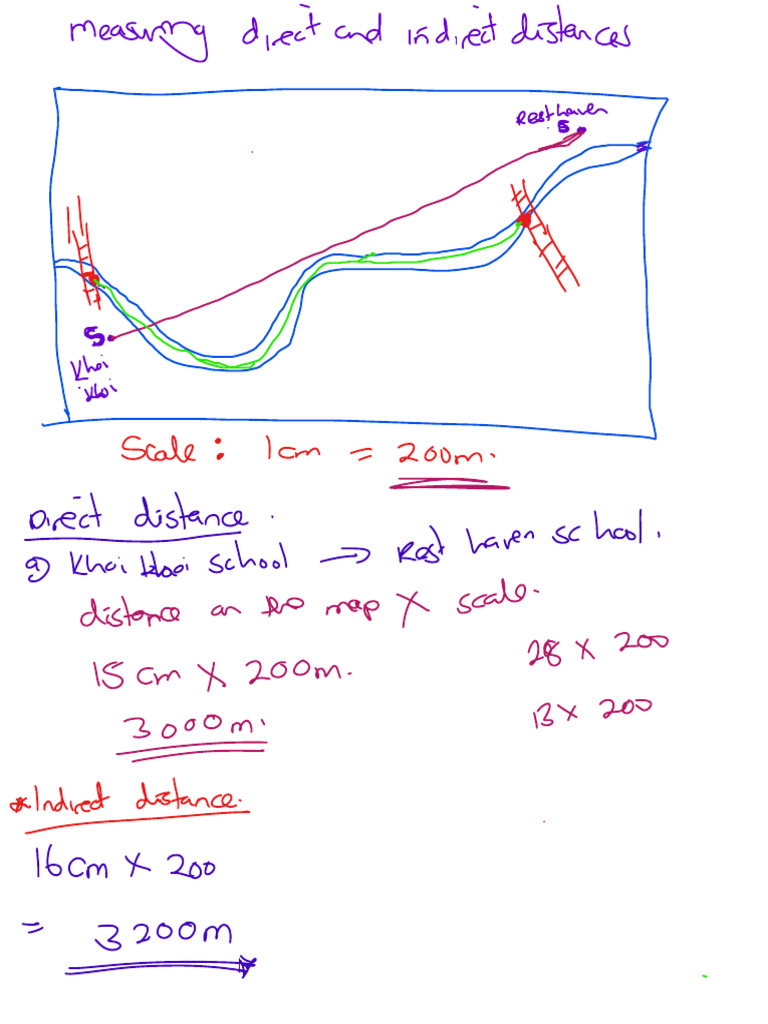 measuring direct and indirect distances
Rest haven
S
S
Khoi
Khoi
Scale: 1cm = 200m.
Direct distance.
a) Khoi khoi school → Rest haven school.
distance on the map X scale.
15cm X 200m.
28 X 200
3000m.
13 X 200
*Indirect distance.
16cm X 200
= 3200m